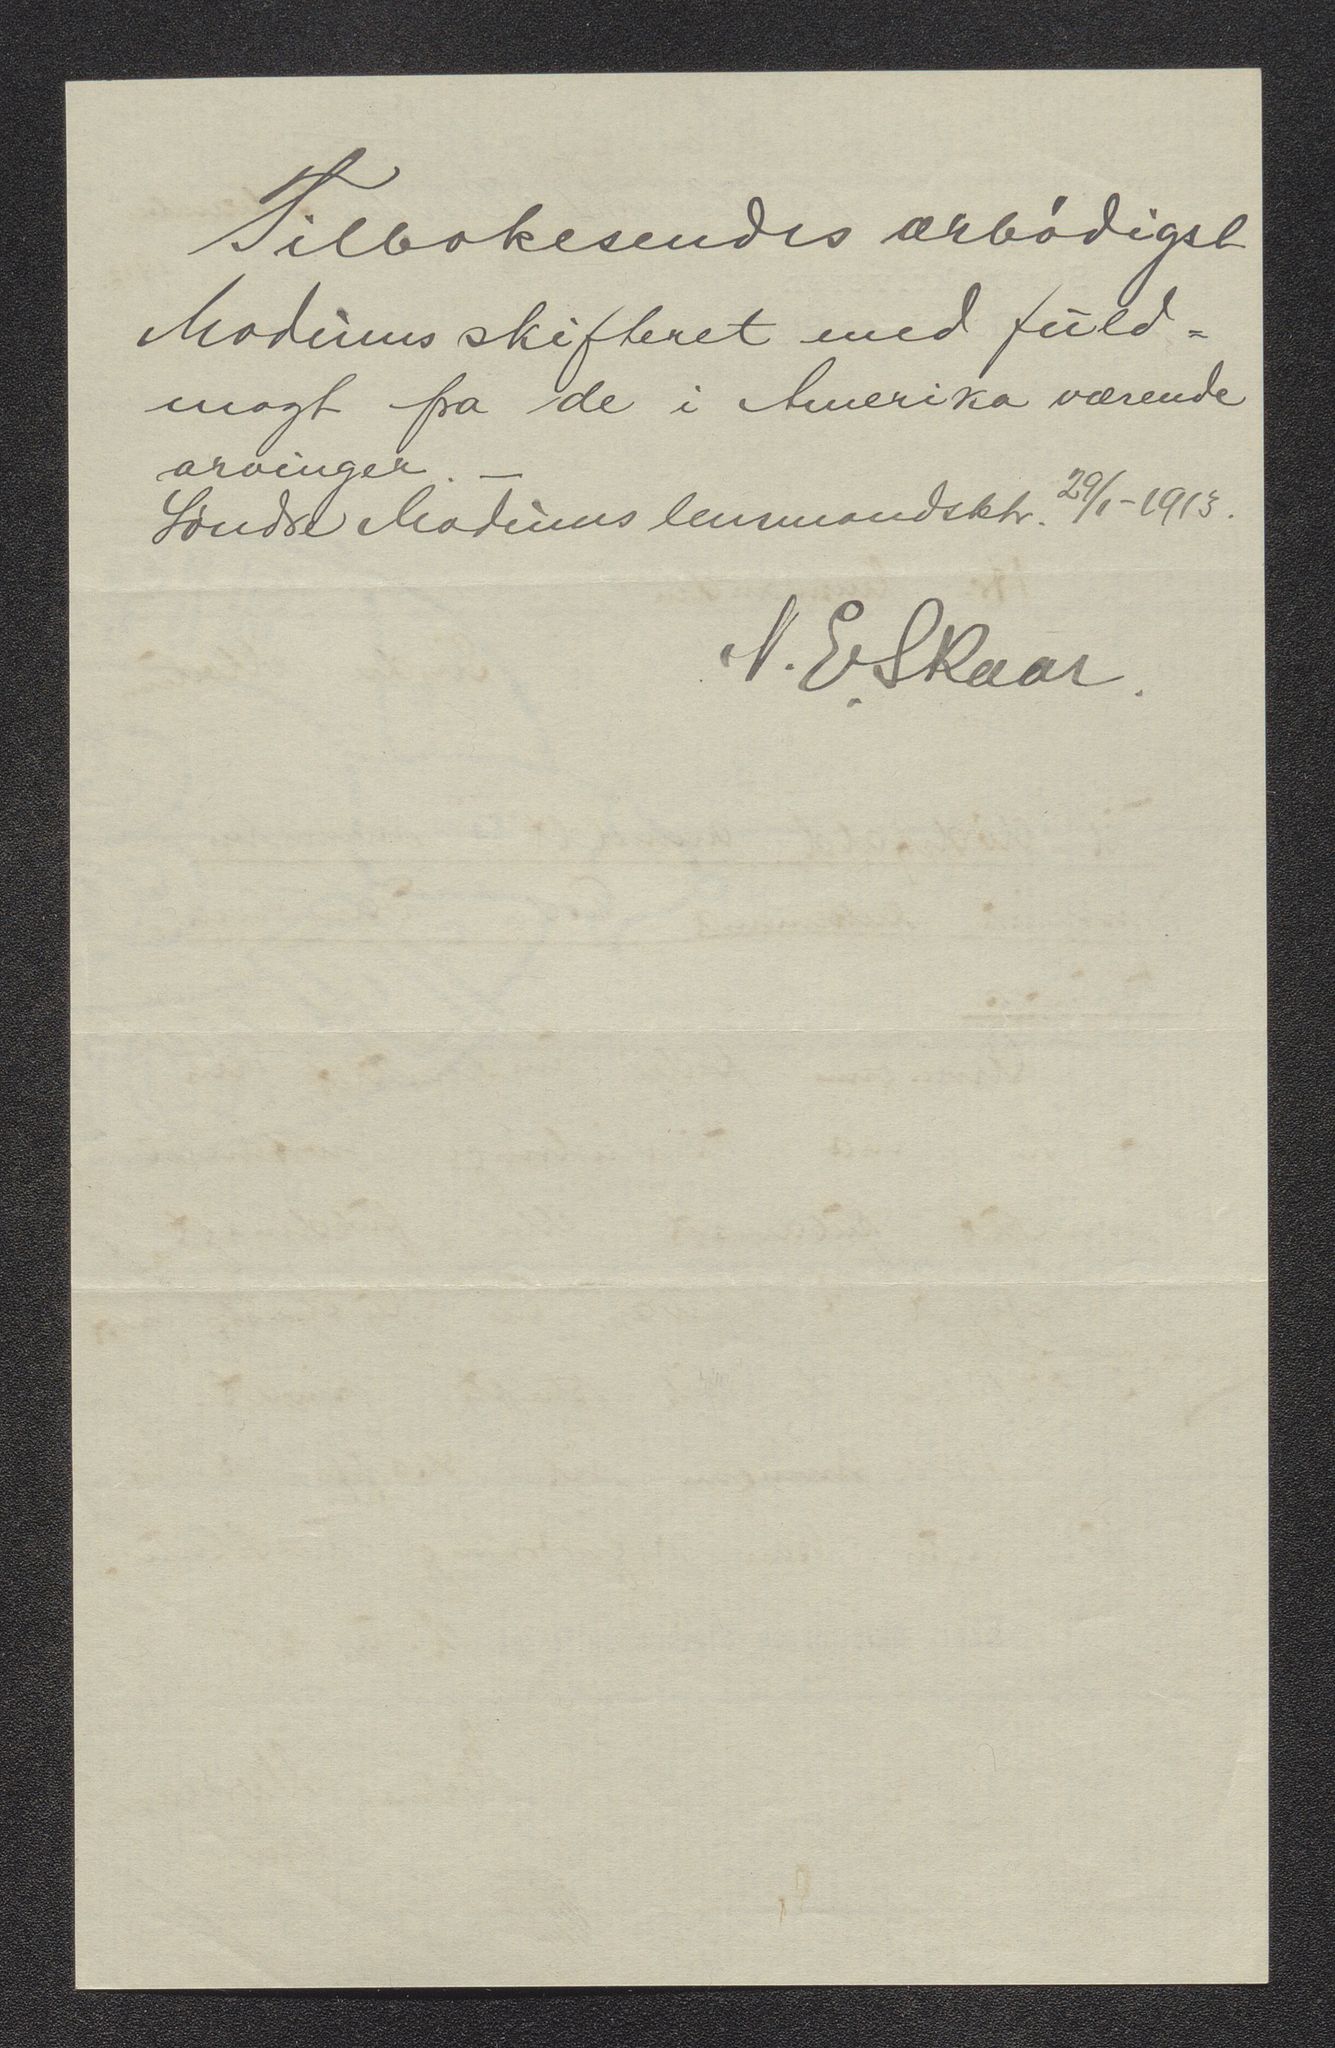 Tilbakesendes ærbödigst
Modums skifteret med fuld-
magt fra de i Amerika værende
arvinger. —
Söndre Modums lensmandsktr. 29/1-1913.
N. E. Skaar.